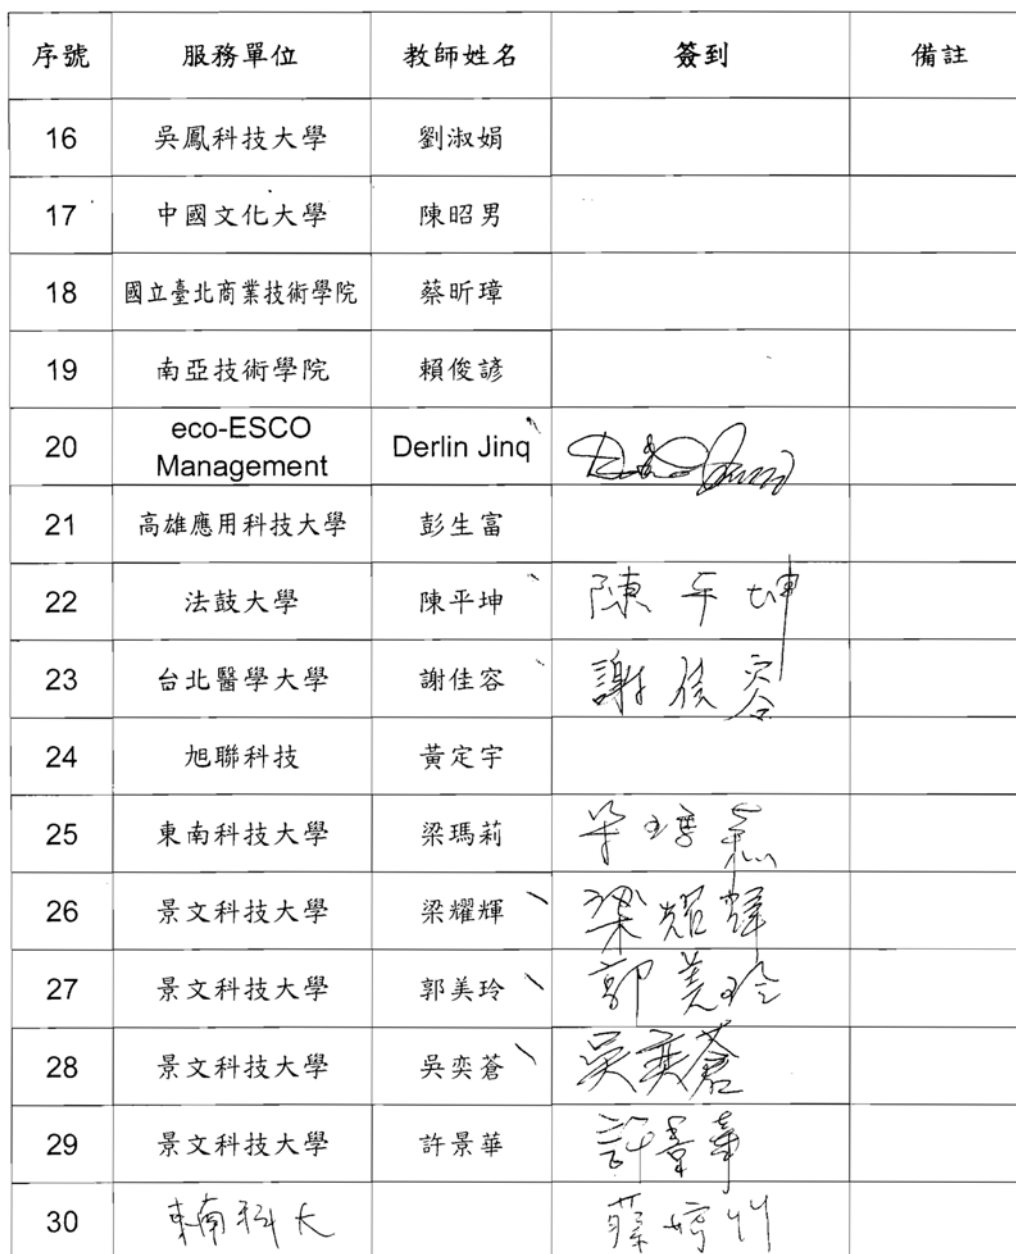 序號 服務單位 教師姓名 簽到 備註
16 吳鳳科技大學 劉淑娟
17 中國文化大學 陳昭男
18 國立臺北商業技術學院 蔡昕璋
19 南亞技術學院 賴俊諺
20 eco-ESCO Management Derlin Jinq
21 高雄應用科技大學 彭生富
22 法鼓大學 陳平坤 陳平坤
23 台北醫學大學 謝佳容 謝佳容
24 旭聯科技 黃定宇
25 東南科技大學 梁瑪莉
26 景文科技大學 梁耀輝 梁耀輝
27 景文科技大學 郭美玲 郭美玲
28 景文科技大學 吳奕蒼 吳奕蒼
29 景文科技大學 許景華 許景華
30 東南科大